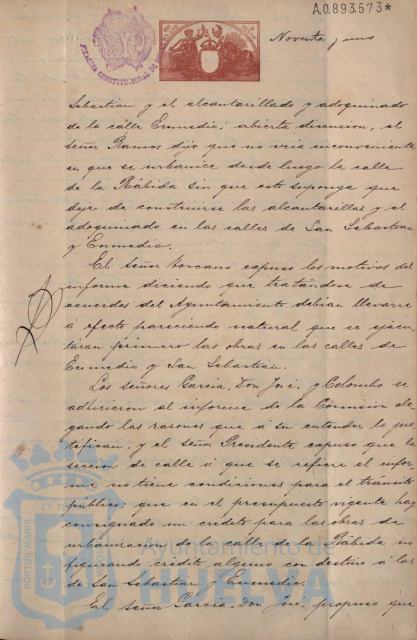 A.0.893.573*
Noventa y uno
ALCALDIA CONSTITUCIONAL DE
Sebastian y el alcantarillado y adoquinado
de la calle Enmedio; abierta discusion, el
señor Ramos dijo que no veia inconveniente
en que se urbanice desde luego la calle
de la Rábida sin que esto suponga que
deje de construirse las alcantarillas y el
adoquinado en las calles de San Sebastian
y Enmedio.
El señor Toscano expuso los motivos del
informe diciendo que tratándose de
acuerdos del Ayuntamiento debian llevarse
á efecto pareciendo natural que se ejecu-
taran primero las obras en las calles de
Enmedio y San Sebastian.
Los señores Garcia, Don José, y Colombo se
adhirieron al informe de la Comision ale-
gando las razones que á su entender lo jus-
tifican, y el señor Presidente expuso que la
seccion de calle á que se refiere el infor-
me no tiene condiciones para el tránsito
público; que en el presupuesto vigente hay
consignado un crédito para las obras de
urbanizacion de la calle de la Rábida no
figurando crédito alguno con destino á las
de San Sebastian y Enmedio.
El señor Garcia, Don José, propuso que
PORTUS MARIS
Ayuntamiento de
HUELVA